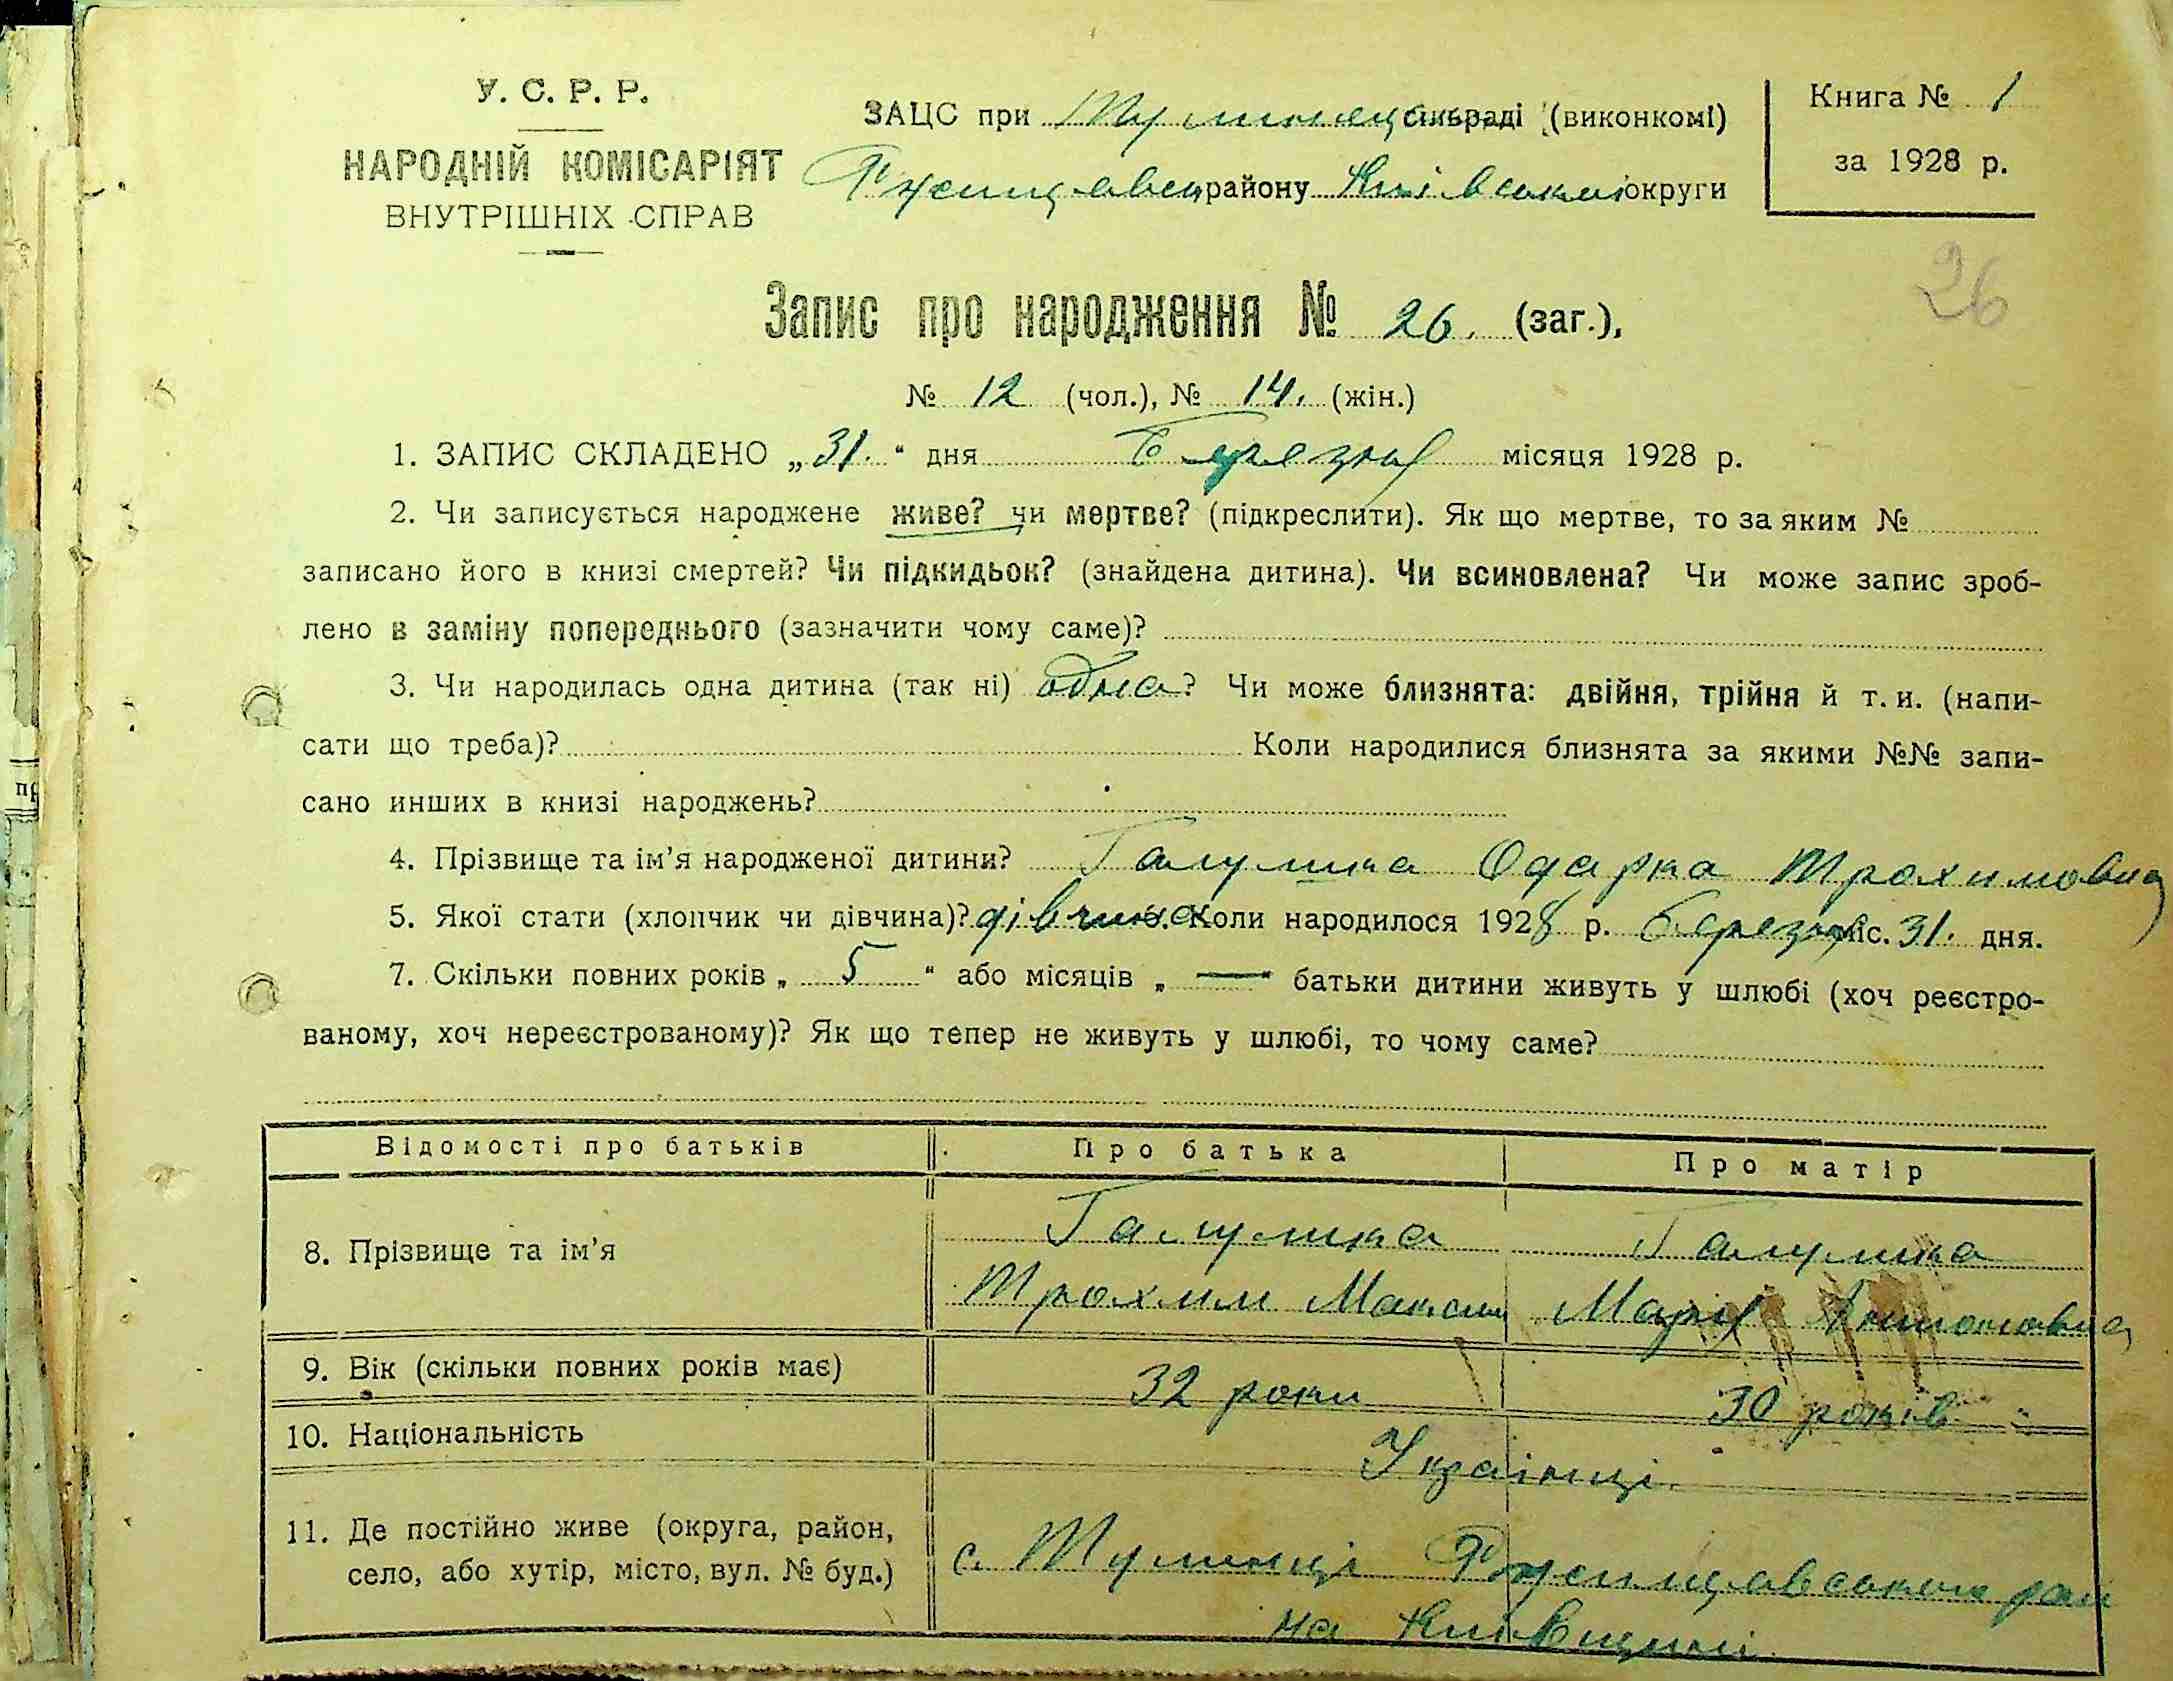 У. С. Р. Р.
НАРОДНІЙ КОМІСАРІЯТ
ВНУТРІШНІХ СПРАВ
ЗАЦС при сільраді (виконкомі)
району Київської округи
Книга № 1
за 1928 р.
26
Запис про народження № 26. (заг.),
№ 12 (чол.), № 14. (жін.)
1. ЗАПИС СКЛАДЕНО „31." дня Березня місяця 1928 р.
2. Чи записується народжене живе? чи мертве? (підкреслити). Як що мертве, то за яким №
записано його в книзі смертей? Чи підкидьок? (знайдена дитина). Чи всиновлена? Чи може запис зроб-
лено в заміну попереднього (зазначити чому саме)?
3. Чи народилась одна дитина (так ні) одна? Чи може близнята: двійня, трійня й т. и. (напи-
сати що треба)? Коли народилися близнята за якими №№ запи-
сано инших в книзі народжень?
4. Прізвище та ім'я народженої дитини? Галушка Одарка Трохимовна
5. Якої стати (хлопчик чи дівчина)? дівчина. Коли народилося 1928 р. Березня міс. 31. дня.
7. Скільки повних років „ 5 " або місяців „ — " батьки дитини живуть у шлюбі (хоч реєстро-
ваному, хоч нереєстрованому)? Як що тепер не живуть у шлюбі, то чому саме?
Відомості про батьків
Про батька
Про матір
8. Прізвище та ім'я
Галушка
Трохим Максим
Галушка
Марія Антоновна
9. Вік (скільки повних років має)
32 роки
30 років
10. Національність
Українці
11. Де постійно живе (округа, район,
село, або хутір, місто, вул. № буд.)
с. Тулинці Ржищавського рай
на Київщині